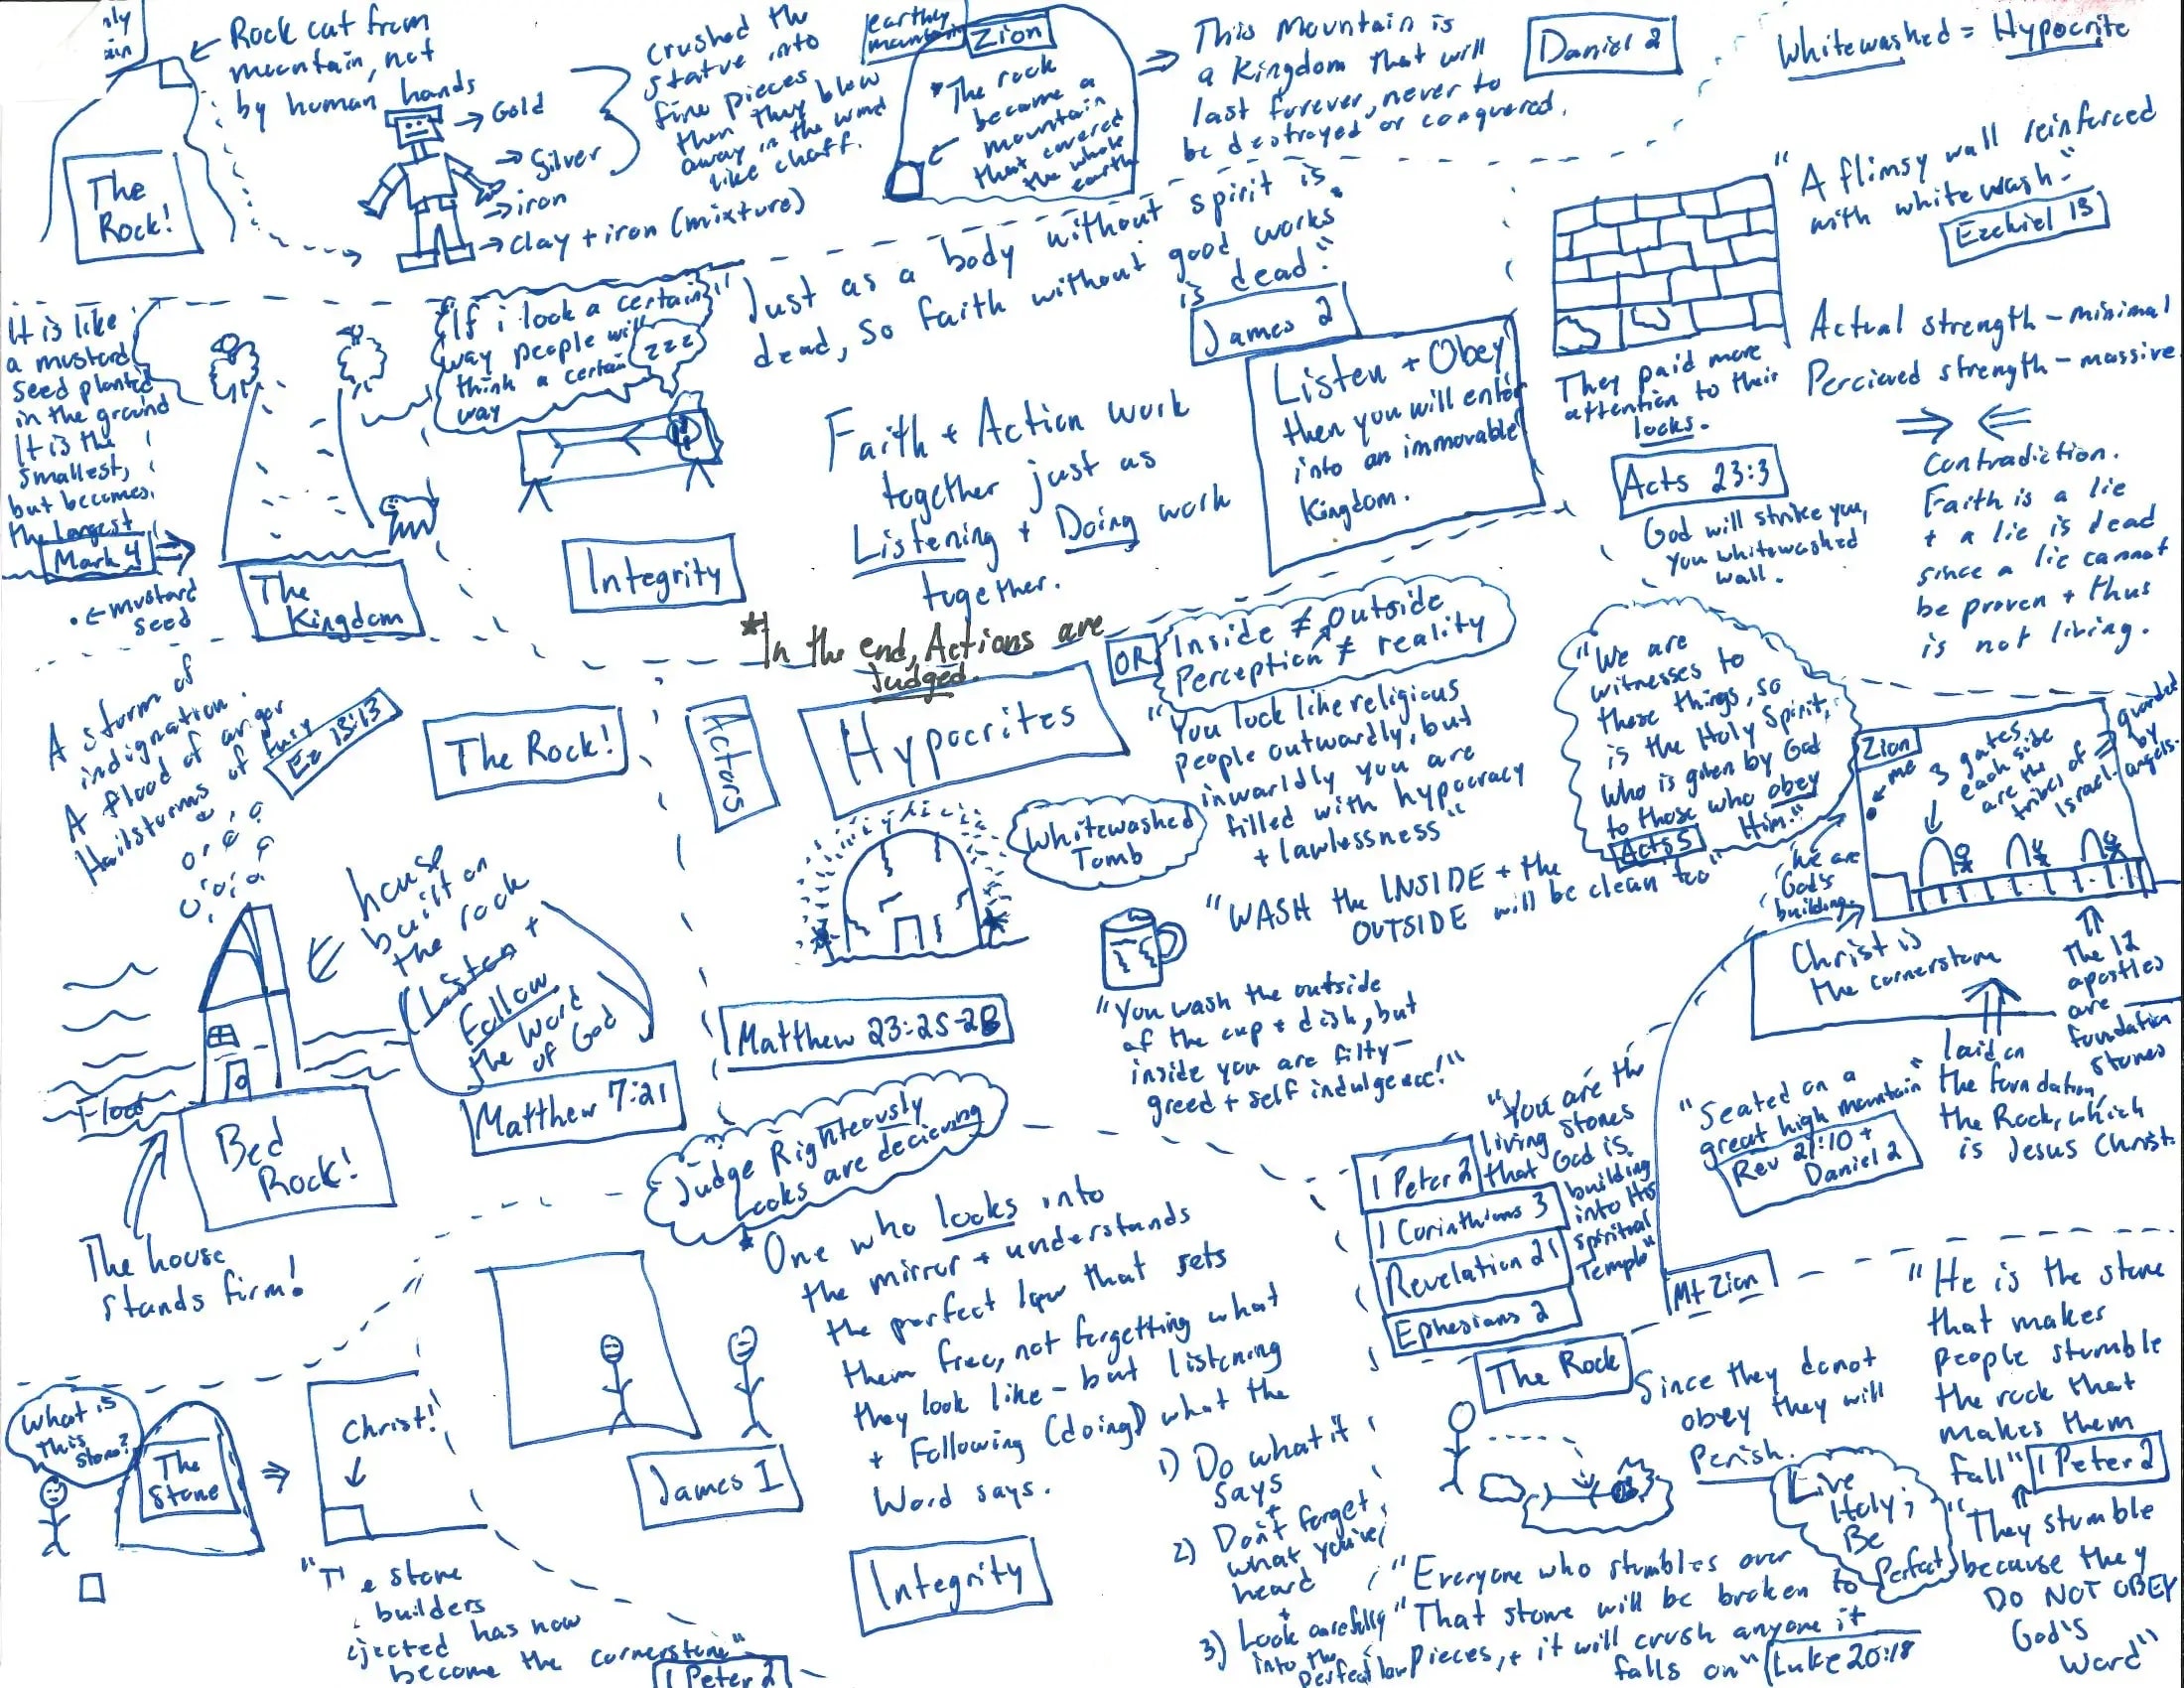 Rock cut from
mountain, not
by human hands
The
Rock!
→ Gold
→ Silver
→ iron
→ clay + iron (mixture)
crushed the
statue into
fine pieces
then they blow
away in the wind
like chaff.
earthly
mountain
Zion
*The rock
became a
mountain
that covered
the whole
earth
⇒ This Mountain is
a Kingdom that will
last forever, never to
be destroyed or conquered.
Daniel 2
Whitewashed = Hypocrite
"A flimsy wall reinforced
with whitewash."
Ezekiel 13
Actual strength - minimal
Percieved strength - massive
⇒ ⇐
Contradiction.
Faith is a lie
+ a lie is dead
since a lie cannot
be proven + thus
is not living.
They paid more
attention to their
looks.
Acts 23:3
God will strike you,
you whitewashed
wall.
It is like
a mustard
seed planted
in the ground
It is the
smallest,
but becomes
the largest
Mark 4
← mustard
seed
The
Kingdom
"If i look a certain
way people will
think a certain
way
zzz
Integrity
"Just as a body without spirit is
dead, so faith without good works
is dead."
James 2
Faith + Action work
together just as
Listening + Doing work
together.
Listen + Obey
then you will enter
into an immovable
Kingdom.
*In the end, Actions are
Judged.
OR
Inside ≠ outside
Perception ≠ reality
A storm of
indignation.
A flood of anger
Hailstorms of fury
Ez 13:13
The Rock!
house
built on
the rock
Listen +
Follow
the Word
of God
Matthew 7:21
Flood
Bed
Rock!
The house
stands firm!
Actors
Hypocrites
Whitewashed
Tomb
Matthew 23:25-28
"You look like religious
people outwardly, but
inwarldly you are
filled with hypocracy
+ lawlessness"
"WASH the INSIDE + the
OUTSIDE will be clean too"
"You wash the outside
of the cup + dish, but
inside you are filty-
greed + self indulgence!"
"We are
witnesses to
these things, so
is the Holy Spirit,
who is given by God
to those who obey
Him."
Acts 5
Zion
me
3 gates
each side
are the
tribes of
Israel-
guarded
by
angels.
We are
God's
building.
Christ is
the cornerstone
The 12
apostles
are
foundation
stones
laid on
the foundation,
the Rock, which
is Jesus Christ.
"Seated on a
great high mountain"
Rev 21:10 +
Daniel 2
Mt Zion
"You are the
living stones
that God is
building
into His
spiritual
Temple"
1 Peter 2
1 Corinthians 3
Revelation 21
Ephesians 2
Judge Righteously
Looks are decieving
*One who looks into
the mirror + understands
the perfect law that sets
them free, not forgetting what
they look like - but listening
+ Following (doing) what the
Word says.
James 1
Integrity
1) Do what it
says
+
2) Don't forget
what you've
heard
+
3) Look carefully
into the
perfect law
What is
this
stone?
The
Stone
Christ!
stone
builders
has now
become the cornerstone"
1 Peter 2
The Rock
Since they donot
obey they will
Perish.
Live
Holy;
Be
Perfect
"He is the stone
that makes
people stumble
the rock that
makes them
fall"
1 Peter 2
"They stumble
because they
DO NOT OBEY
God's
Word"
"Everyone who stumbles over
That stone will be broken to
pieces, + it will crush anyone it
falls on"
Luke 20:18